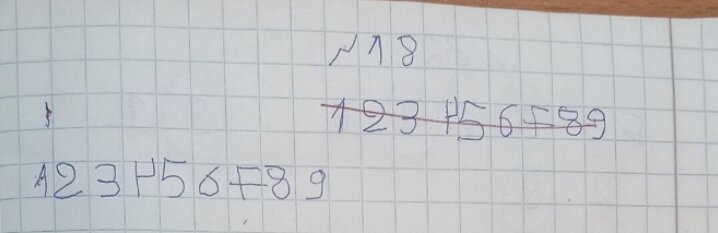 N18
123456789
123456789